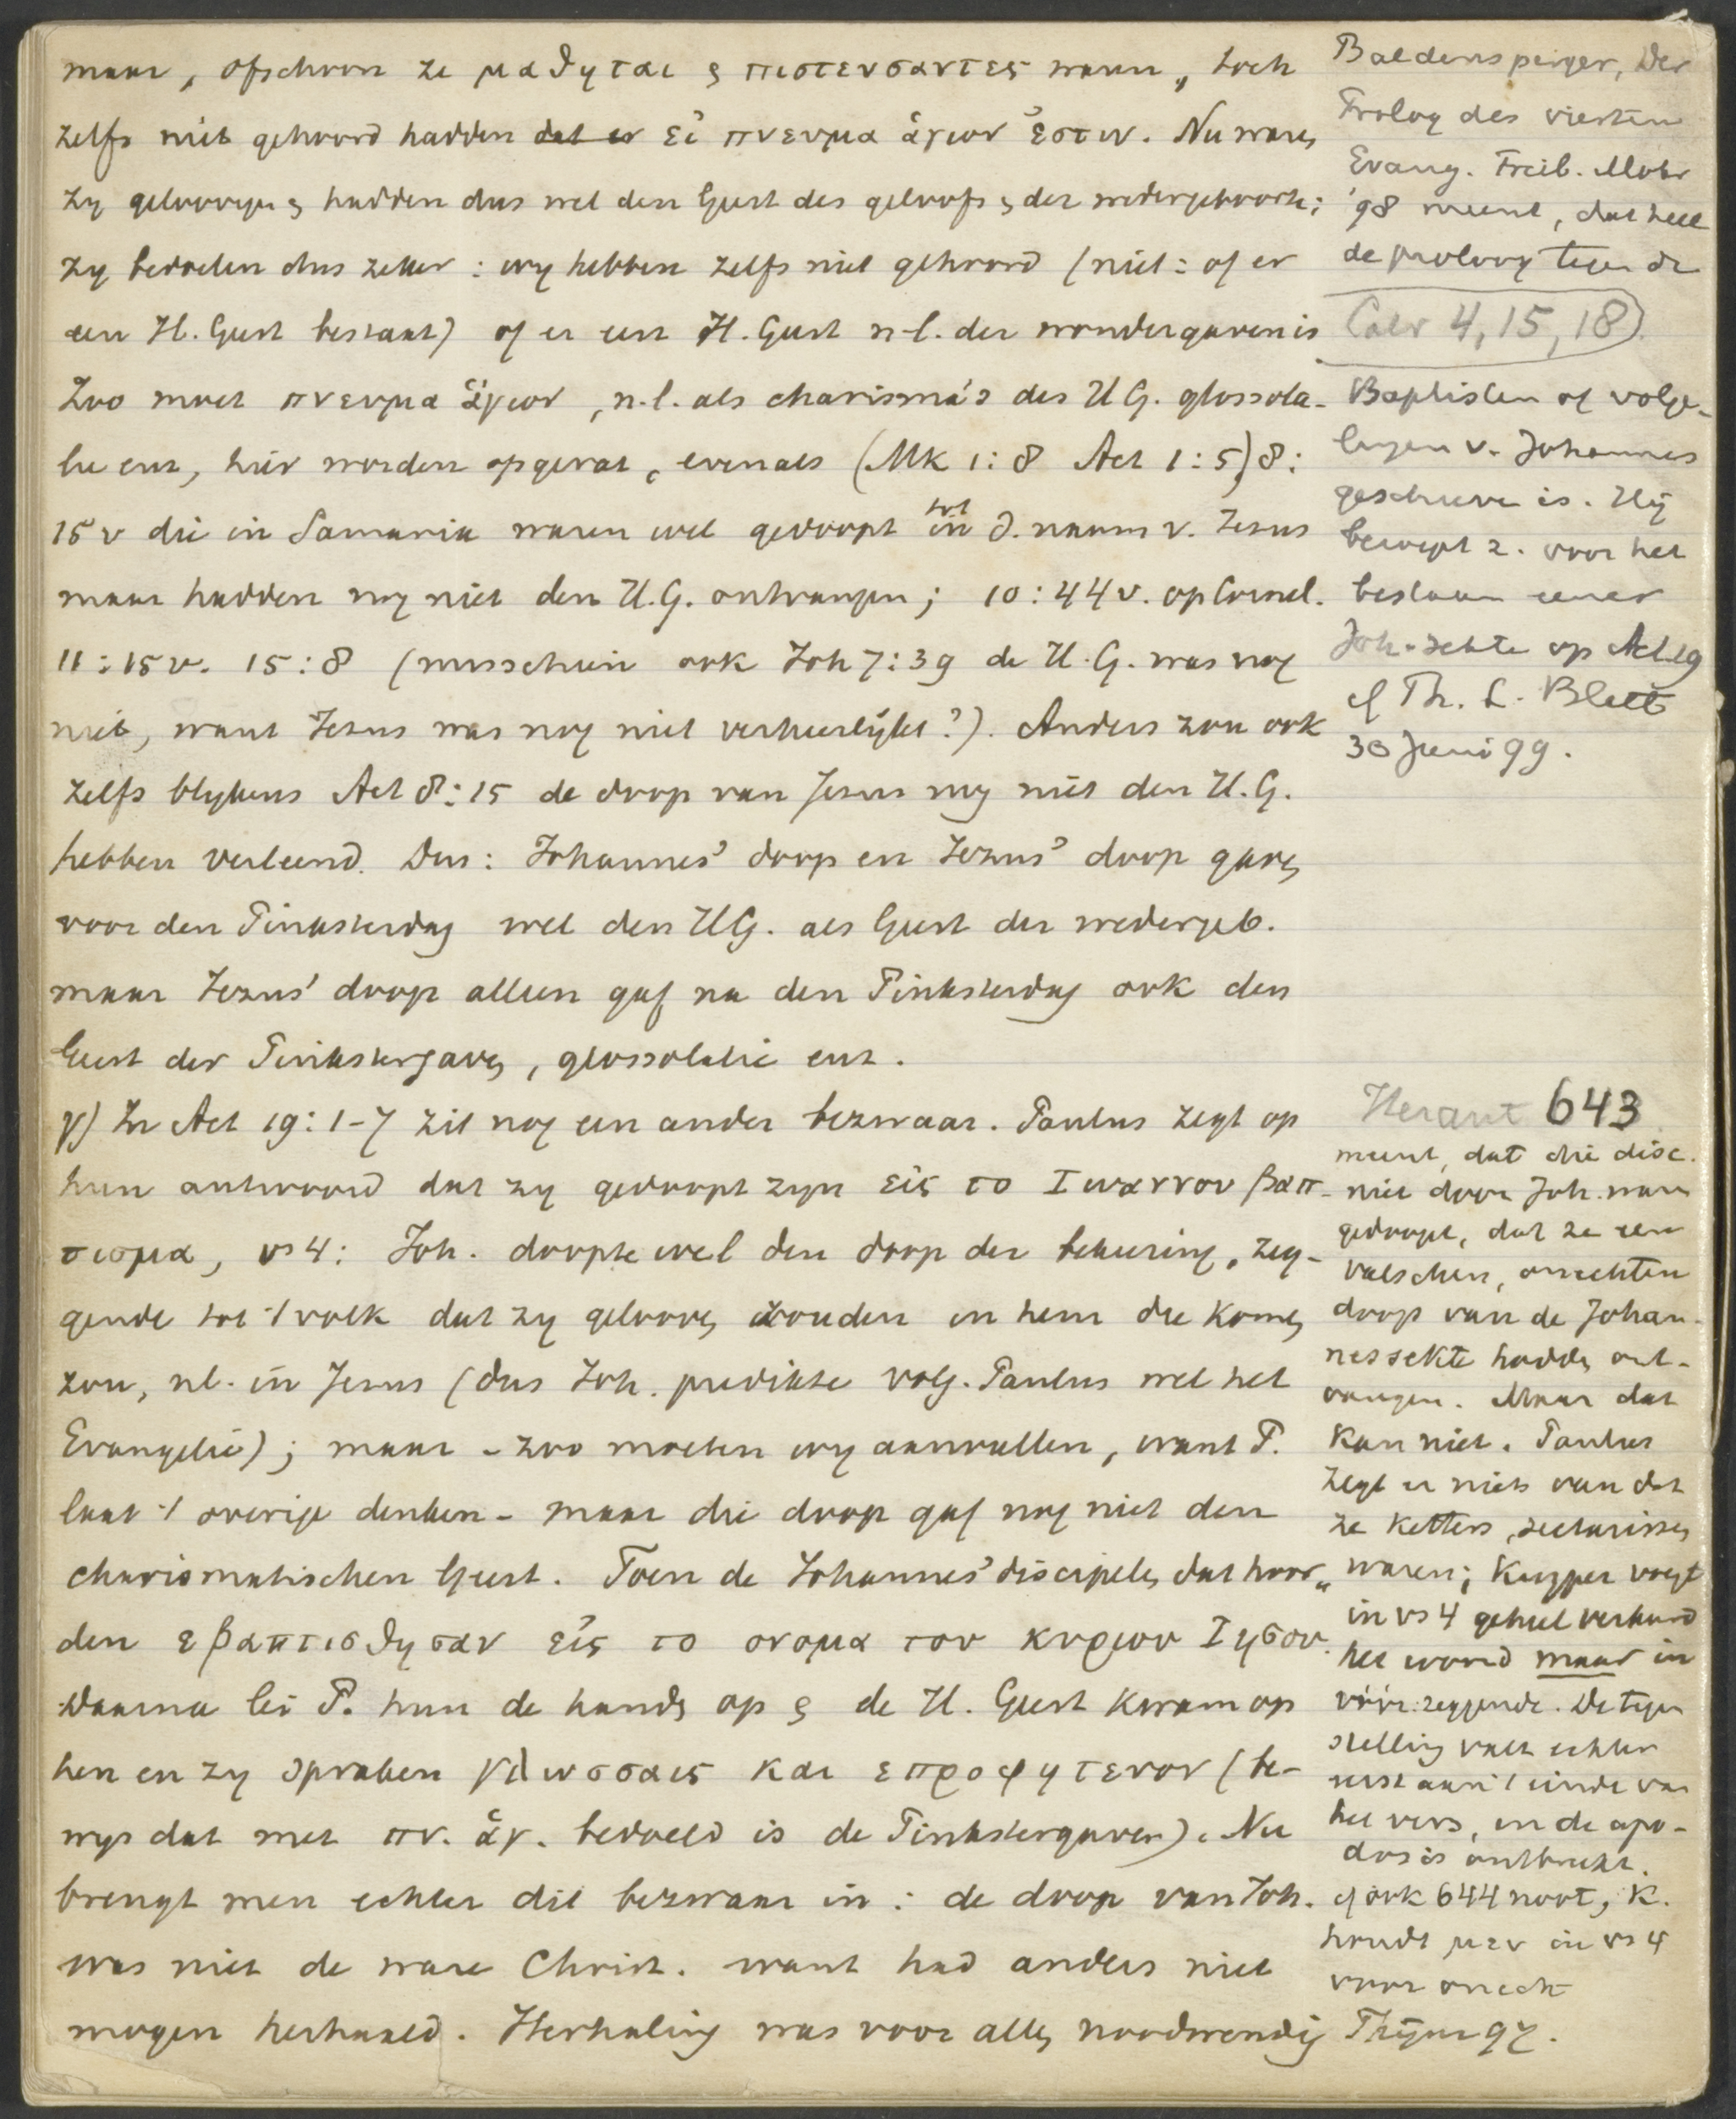 maar, ofschoon ze μαθηται & πιστευσαντες waren, toch
zelfs niet gehoord hadden dat er εἰ πνευμα ἁγιον ἐστιν. Nu waren
zy geloovigen & hadden dus wel den Geest des geloofs & der wedergeboorte;
zy bedoelen dus zeker: wy hebben zelfs niet gehoord (niet: of er
een H. Geest bestaat) of er een H. Geest n-l. der wondergaven is
Zoo moet πνευμα ἁγιον, n.l. als charisma's des H G. glossola-
lie enz, hier worden opgevat, evenals (Mk 1:8 Act 1:5) 8:
15 v die in Samaria waren wel gedoopt in tot d. naam v. Jezus
maar hadden nog niet den H.G. ontvangen; 10:44v. op Cornel.
11:15v. 15:8 (misschien ook Joh 7:39 de H.G. was nog
niet, want Jezus was nog niet verheerlykt?). Anders zou ook
zelfs blykens Act 8:15 de doop van Jezus nog niet den H.G.
hebben verleend. Dus: Johannes' doop en Jezus' doop gaven
voor den Pinksterdag wel den HG. als Geest der wedergeb.
maar Jezus' doop alleen gaf na den Pinksterdag ook den
Geest der Pinkstergaven, glossolalie enz.
γ) In Act 19:1-7 zit nog een ander bezwaar. Paulus zegt op
hun antwoord dat zy gedoopt zyn εἰς το Ιωαννου βαπ-
τισμα, vs 4: Joh. doopte wel den doop der bekeering, zeg-
gende tot 't volk dat zy gelooven zouden in hem die komen
zou, nl. in Jezus (dus Joh. predikte volg. Paulus wel het
Evangelie); maar - zoo moeten wy aanvullen, want P.
laat 't overige denken - maar die doop gaf nog niet den
charismatischen Geest. Toen de Johannes'discipelen dat hoor-
den εβαπτισθησαν εἰς το ονομα του κυριου Ιησου.
Daarna lei P. hun de handen op & de H. Geest kwam op
hen en zy spraken γλωσσαις και επροφητευον (be-
wys dat met πν. ἁγ. bedoeld is de Pinkstergaven). Nu
brengt men echter dit bezwaar in: de doop van Joh.
was niet de ware Christ. want had anders niet
mogen herhaald. Herhaling was voor allen noodwendig
Baldensperger, Der
Prolog des vierten
Evang. Freib. Mohr
'98 meent, dat heel
de proloog tegen de
Calv 4, 15, 18)
Baptisten of volge-
lingen v. Johannes
geschreven is. Hij
beroept z. voor het
bestaan eener
Joh-sekte op Act 19
cf Th. L. Blatt
30 Juni 99.
Heraut 643
meent, dat die disc.
niet door Joh. waren
gedoopt, dat ze een
valschen, onechten
doop van de Johan-
nessekte hadden ont-
vangen. Maar dat
kan niet. Paulus
zegt er niets van dat
ze ketters, sectarissen
waren; Kuyper voegt
in vs 4 geheel verkeerd
het woord maar in
vóór: zeggende. De tegen
stelling valt echter
eerst aan 't einde van
het vers, en de apo-
dosis ontbreekt.
cf ook 644 noot, K.
houdt μεν in vs 4
voor onecht
Thijm 97.